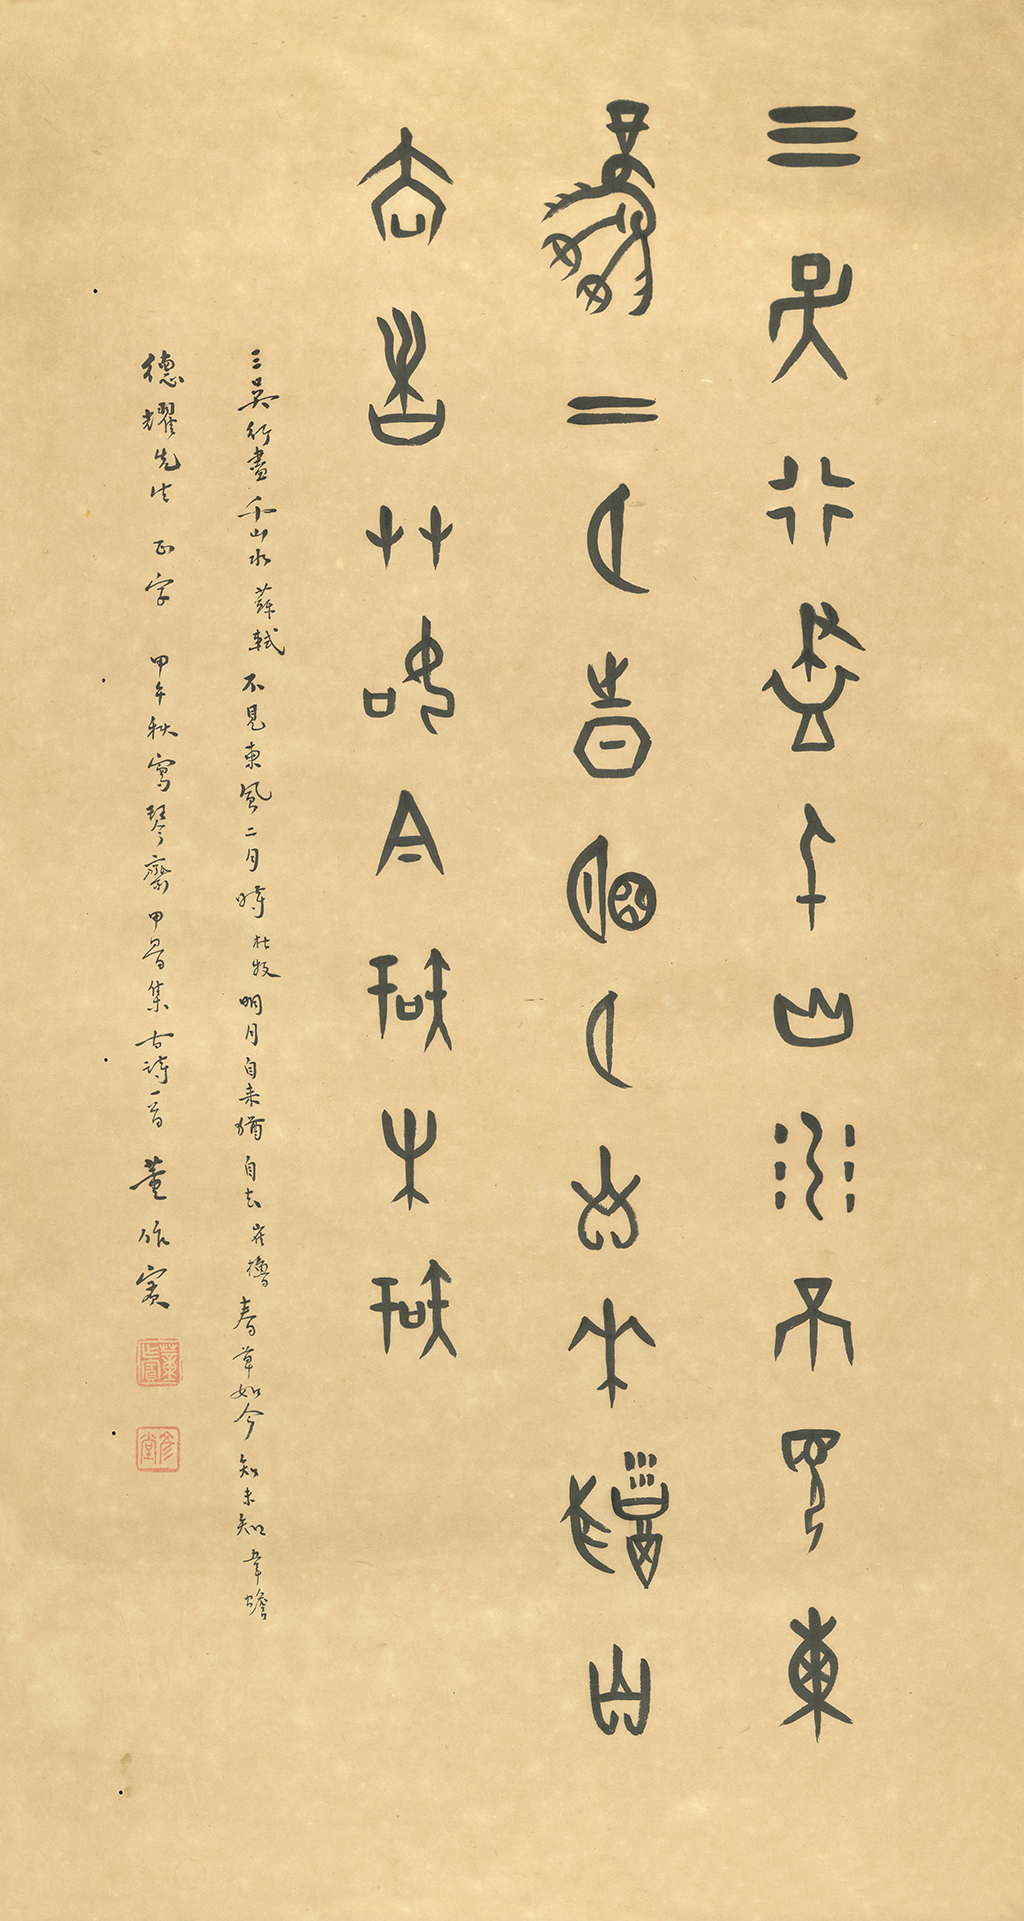 三吳行盡千山水不見東
風二月時明月自來猶自
去春草如今知未知
三吳行盡千山水 薛軾 不見東風二月時 杜牧 明月自來猶自去 崔櫓 春草如今知未知 韋蟾
德耀先生 正字 甲午秋寫琴齋甲骨集古詩一首 董作賓
董作賓
彥堂